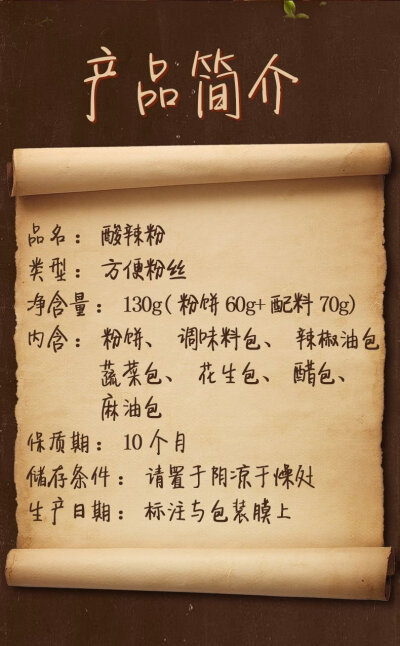 产品简介
品名：酸辣粉
类型：方便粉丝
净含量：130g(粉饼60g+配料70g)
内含：粉饼、调味料包、辣椒油包
蔬菜包、花生包、醋包、
麻油包
保质期：10个月
储存条件：请置于阴凉干燥处
生产日期：标注与包装膜上